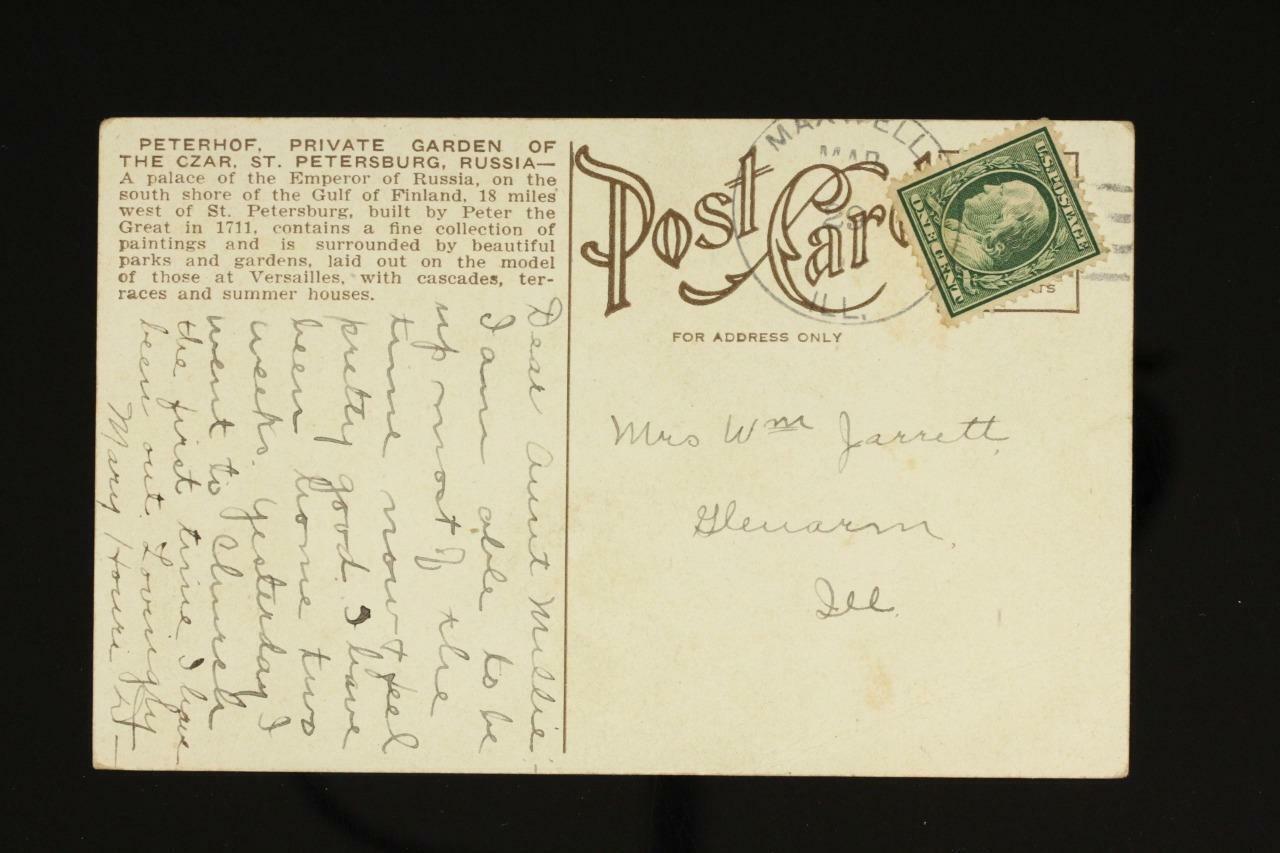 PETERHOF, PRIVATE GARDEN OF
THE CZAR, ST. PETERSBURG, RUSSIA—
A palace of the Emperor of Russia, on the
south shore of the Gulf of Finland, 18 miles
west of St. Petersburg, built by Peter the
Great in 1711, contains a fine collection of
paintings and is surrounded by beautiful
parks and gardens, laid out on the model
of those at Versailles, with cascades, ter-
races and summer houses.
Dear Aunt Millie:
I am able to be
up most of the
time now & feel
pretty good. I have
been home two
weeks. Yesterday I
went to Church
the first time I have
been out. Lovingly
Mary
Post Card
FOR ADDRESS ONLY
MAR
29
ILL.
U.S. POSTAGE
ONE CENT
Mrs Wm Jarrett,
Glenarm,
Ill.